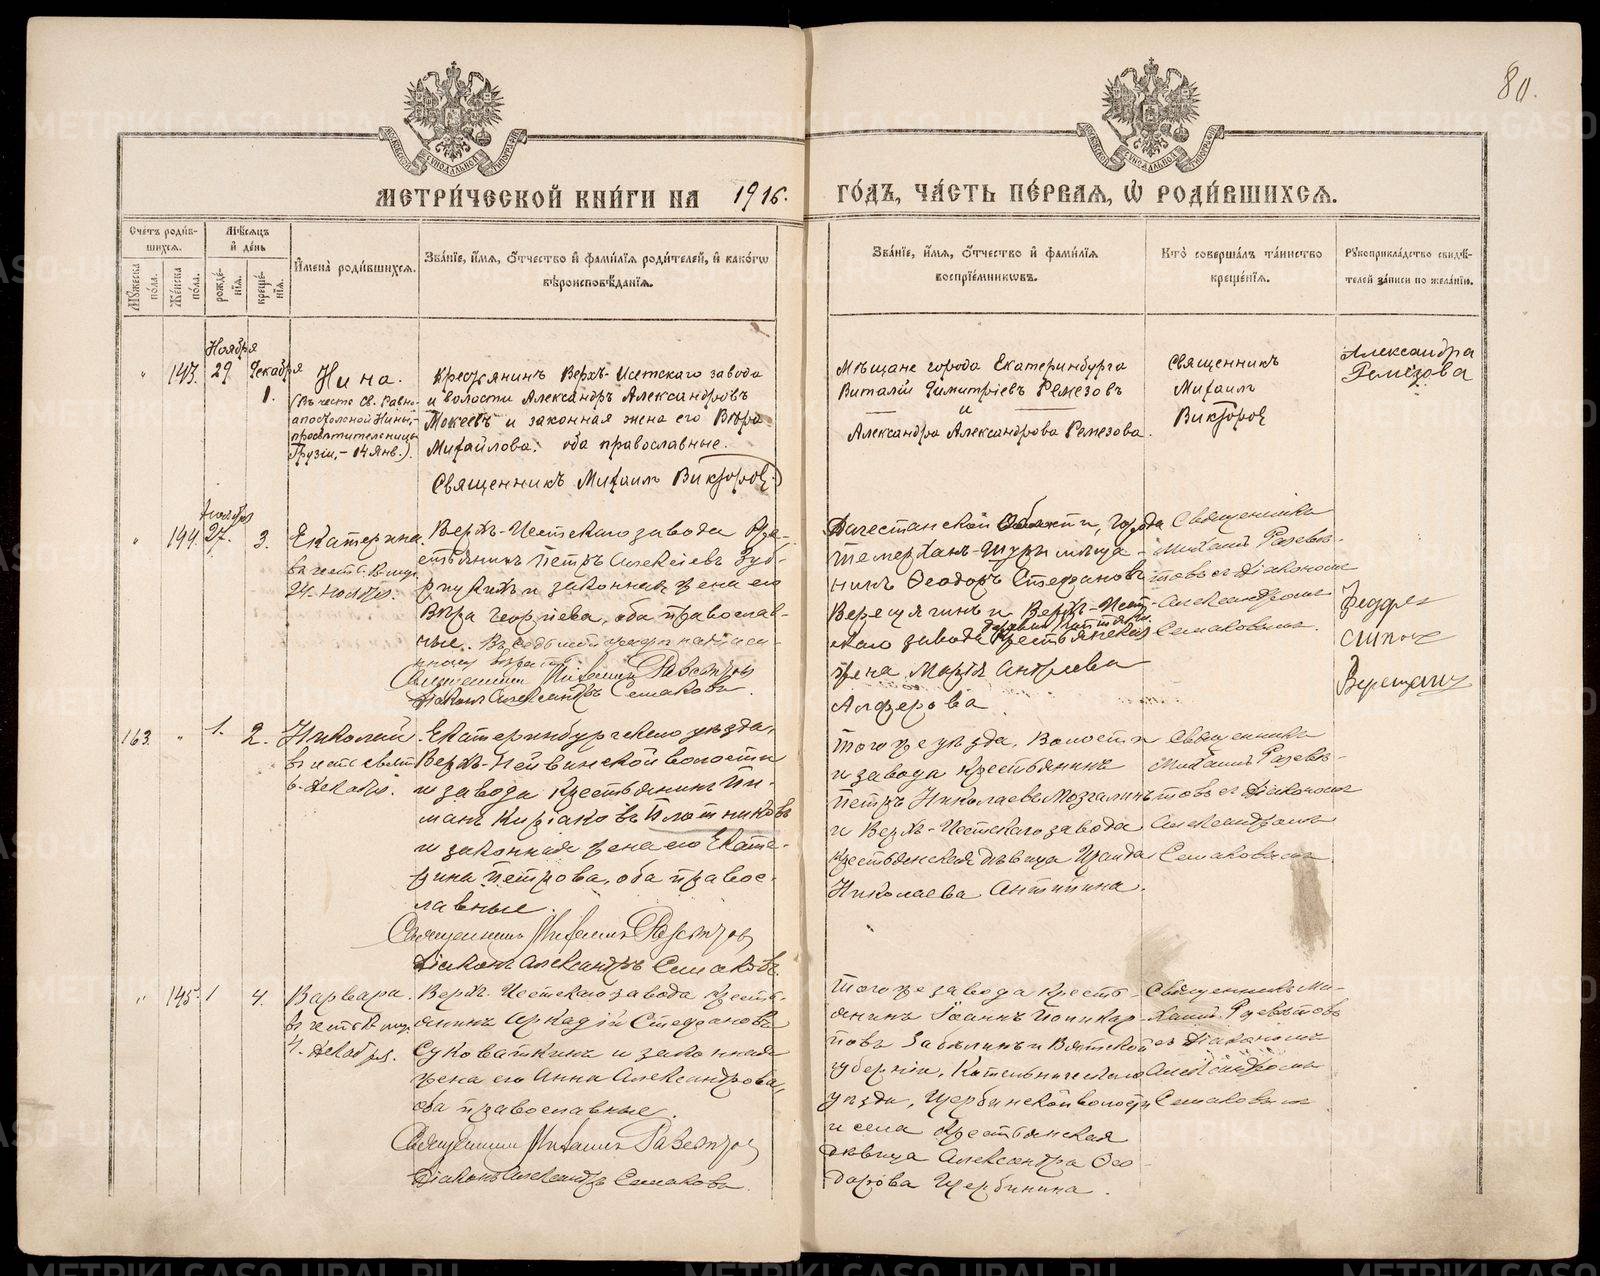 80.
МЕТРИ́ЧЕСКОЙ КНИ́ГИ НА 1916. ГО́ДЪ, ЧА́СТЬ ПЕ́РВАЯ, Ѡ РОДИ́ВШИХСЯ.
Сче́тъ роди́в-
шихся.
Му́жеска по́ла.
Же́нска по́ла.
Мѣ́сяцъ
и де́нь
рожде́-
нія.
креще́-
нія.
Имена̀ роди́вшихся.
Зва́ніе, и́мя, о́тчество и фами́лія роди́телей, и како́гѡ
вѣроисповѣ́данія.
Зва́ніе, и́мя, о́тчество и фами́лія
воспріе́мниковъ.
Кто̀ соверша́лъ та́инство
креще́нія.
Рукоприкла́дство свидѣ́-
телей за́писи по жела́нію.
" 143. Ноября 29 Декабря 1.
Нина.
(Въ честь Св. Равно-
апостольной Нины,
просвѣтительницы
Грузіи, – 14 Янв.).
Крестьянинъ Верхъ-Исетскаго завода
и волости Александръ Александровъ
Мокеевъ и законная жена его Вѣра
Михайлова; оба православные.
Священникъ Михаилъ Викторовъ
Мѣщане города Екатеринбурга
Виталій Димитріевъ Ремезовъ
и
Александра Александрова Ремезова.
Священникъ
Михаилъ
Викторовъ
Александра
Ремезова
" 144. Ноября 27. 3.
Екатерина.
въ честь В. муч.
24. Ноября.
Верхъ-Исетскаго завода Кре-
стьянинъ Петръ Алексіевъ Зуб-
и законная жена его
Вѣра Георгіева, оба православ-
ные.
Священникъ Михаилъ
Діаконъ Александръ Семаковъ.
Дагестанской Области, города
Темерханъ-Шуры мѣща-
нинъ Ѳеодоръ Стефановъ
Верещагинъ и Верхъ-Исет-
скаго завода крестьянская
жена Марія Андреева
Алферова
Священникъ
Михаилъ
съ Діакономъ
Александромъ
Семаковымъ.
Федоръ
Степ
Верещагинъ
163. " 1. 2.
Николай
въ честь свят.
6. Декабря.
Екатеринбургскаго уѣзда,
Верхъ-Нейвинской волости
и завода крестьянинъ Пи-
манъ Киріаковъ Плотниковъ
и законная жена его Екате-
рина Петрова, оба правос-
лавные.
Священникъ Михаилъ
Діаконъ Александръ Семаковъ.
Того же уѣзда, волости
и завода крестьянинъ
Петръ Николаевъ Мозгалинъ
и Верхъ-Исетскаго завода
крестьянская дѣвица Ираида
Николаева Антипина.
Священникъ
Михаилъ
съ Діакономъ
Александромъ
Семаковымъ
" 145. 1 4.
Варвара.
въ честь В. муч.
4. Декабря.
Верхъ-Исетскаго завода кресть-
янинъ Аркадій Стефановъ
Суковаткинъ и законная
жена его Анна Александрова,
оба православные.
Священникъ Михаилъ
Діаконъ Александръ Семаковъ.
Того же завода кресть-
янинъ Іоаннъ Поликар-
повъ Забѣлинъ и Вятской
губерніи, Котельническаго
уѣзда, Щербинской волости
и села крестьянская
дѣвица Александра Ѳео-
дорова Щербинина.
Священникъ Ми-
хаилъ
съ Діакономъ
Александромъ
Семаковымъ
METRIKI.GASO-URAL.RU